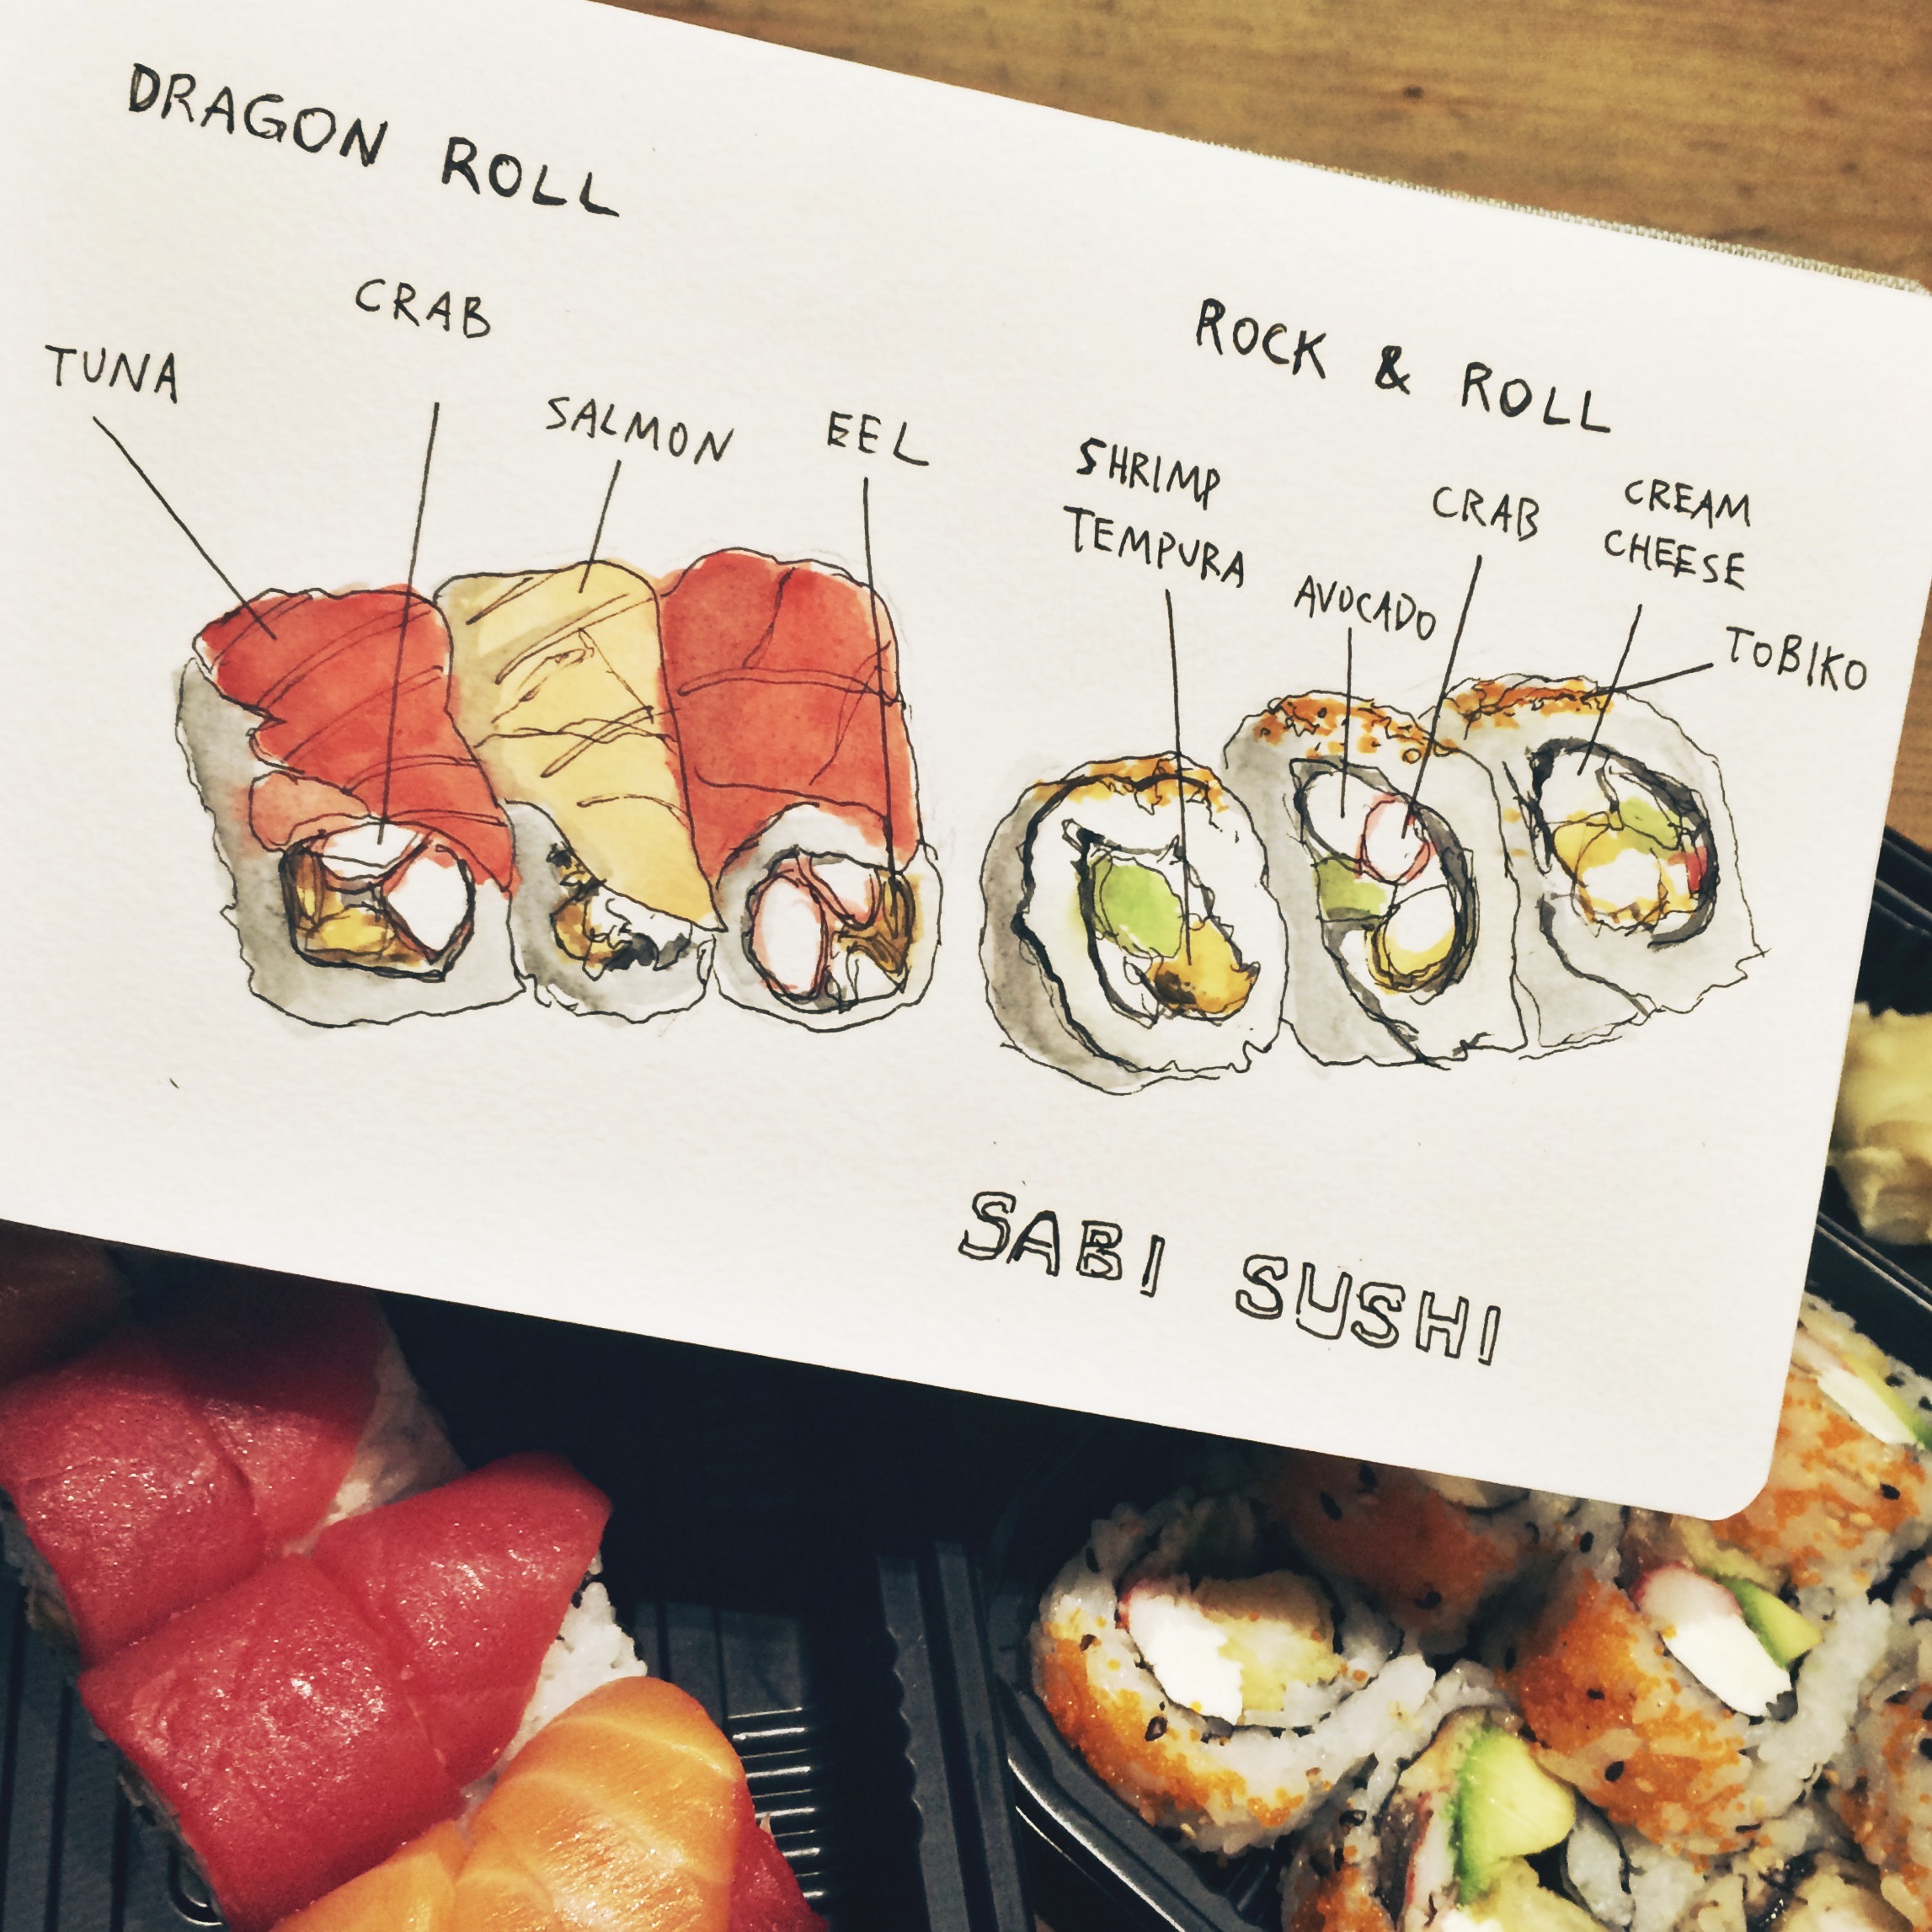 DRAGON ROLL
TUNA
CRAB
SALMON
EEL
ROCK & ROLL
SHRIMP
TEMPURA
AVOCADO
CRAB
CREAM
CHEESE
TOBIKO
SABI SUSHI